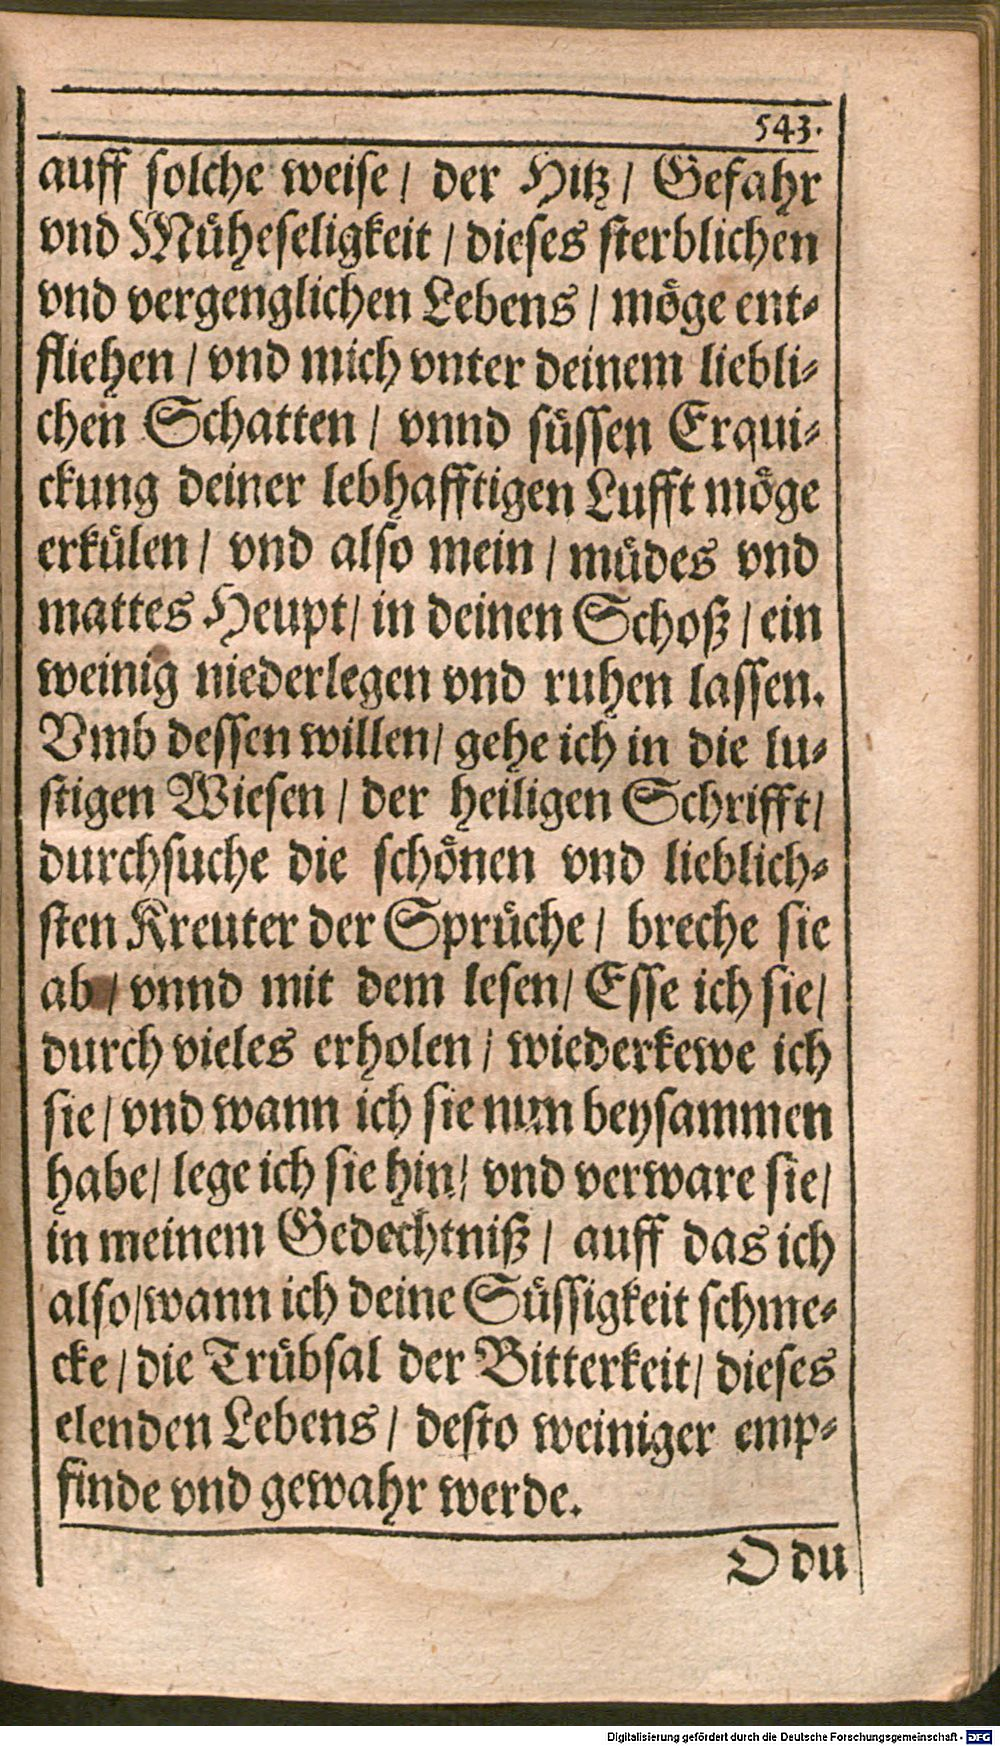 543.
auff solche weise / der Hitz / Gefahr
vnd Müheseligkeit / dieses sterblichen
vnd vergenglichen Lebens / möge ent-
fliehen / vnd mich vnter deinem liebli-
chen Schatten / vnnd süssen Erqui-
ckung deiner lebhafftigen Lufft möge
erkülen / vnd also mein / müdes vnd
mattes Heupt / in deinen Schoß / ein
weinig niederlegen vnd ruhen lassen.
Vmb dessen willen / gehe ich in die lu-
stigen Wiesen / der heiligen Schrifft /
durchsuche die schönen vnd lieblich-
sten Kreuter der Sprüche / breche sie
ab / vnnd mit dem lesen / Esse ich sie /
durch vieles erholen / wiederkewe ich
sie / vnd wann ich sie nun beysammen
habe / lege ich sie hin / vnd verware sie /
in meinem Gedechtniß / auff das ich
also / wann ich deine Süssigkeit schme-
cke / die Trübsal der Bitterkeit / dieses
elenden Lebens / desto weiniger emp-
finde vnd gewahr werde.
O du
Digitalisierung gefördert durch die Deutsche Forschungsgemeinschaft - DFG